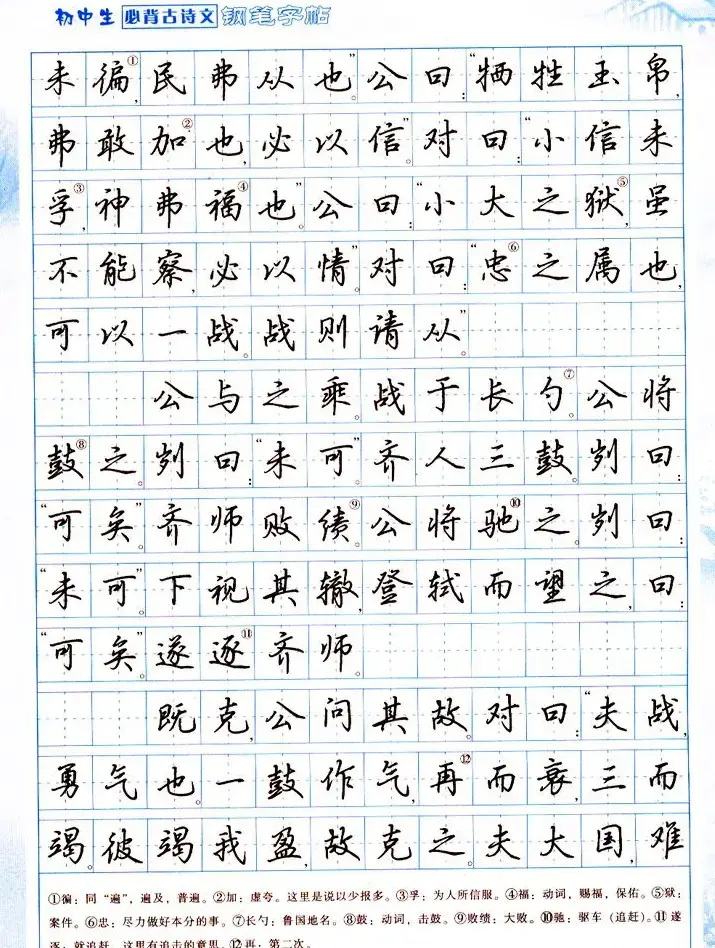 初中生 必背古诗文 钢笔字帖
未徧①,民弗从也。”公曰:“牺牲玉帛,
弗敢加②也,必以信。”对曰:“小信未
孚③,神弗福④也。”公曰:“小大之狱⑤,虽
不能察,必以情。”对曰:“忠⑥之属也,
可以一战。战则请从。”
公与之乘。战于长勺⑦。公将
鼓⑧之。刿曰:“未可。”齐人三鼓。刿曰:
“可矣。”齐师败绩⑨。公将驰⑩之。刿曰:
“未可。”下视其辙,登轼而望之,曰:
“可矣。”遂逐⑪齐师。
既克,公问其故。对曰:“夫战,
勇气也。一鼓作气,再⑫而衰,三而
竭。彼竭我盈,故克之。夫大国,难
①徧:同“遍”,遍及,普遍。②加:虚夸。这里是说以少报多。③孚:为人所信服。④福:动词,赐福,保佑。⑤狱:
案件。⑥忠:尽力做好本分的事。⑦长勺:鲁国地名。⑧鼓:动词,击鼓。⑨败绩:大败。⑩驰:驱车(追赶)。⑪遂
逐:就追赶,这里有追击的意思。⑫再:第二次。